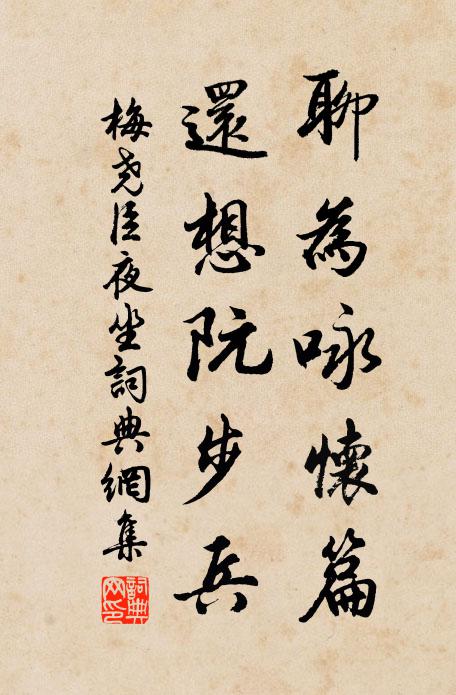 聊為咏懷篇
還想阮步兵
梅尧臣夜坐詞典網集
詞典网印